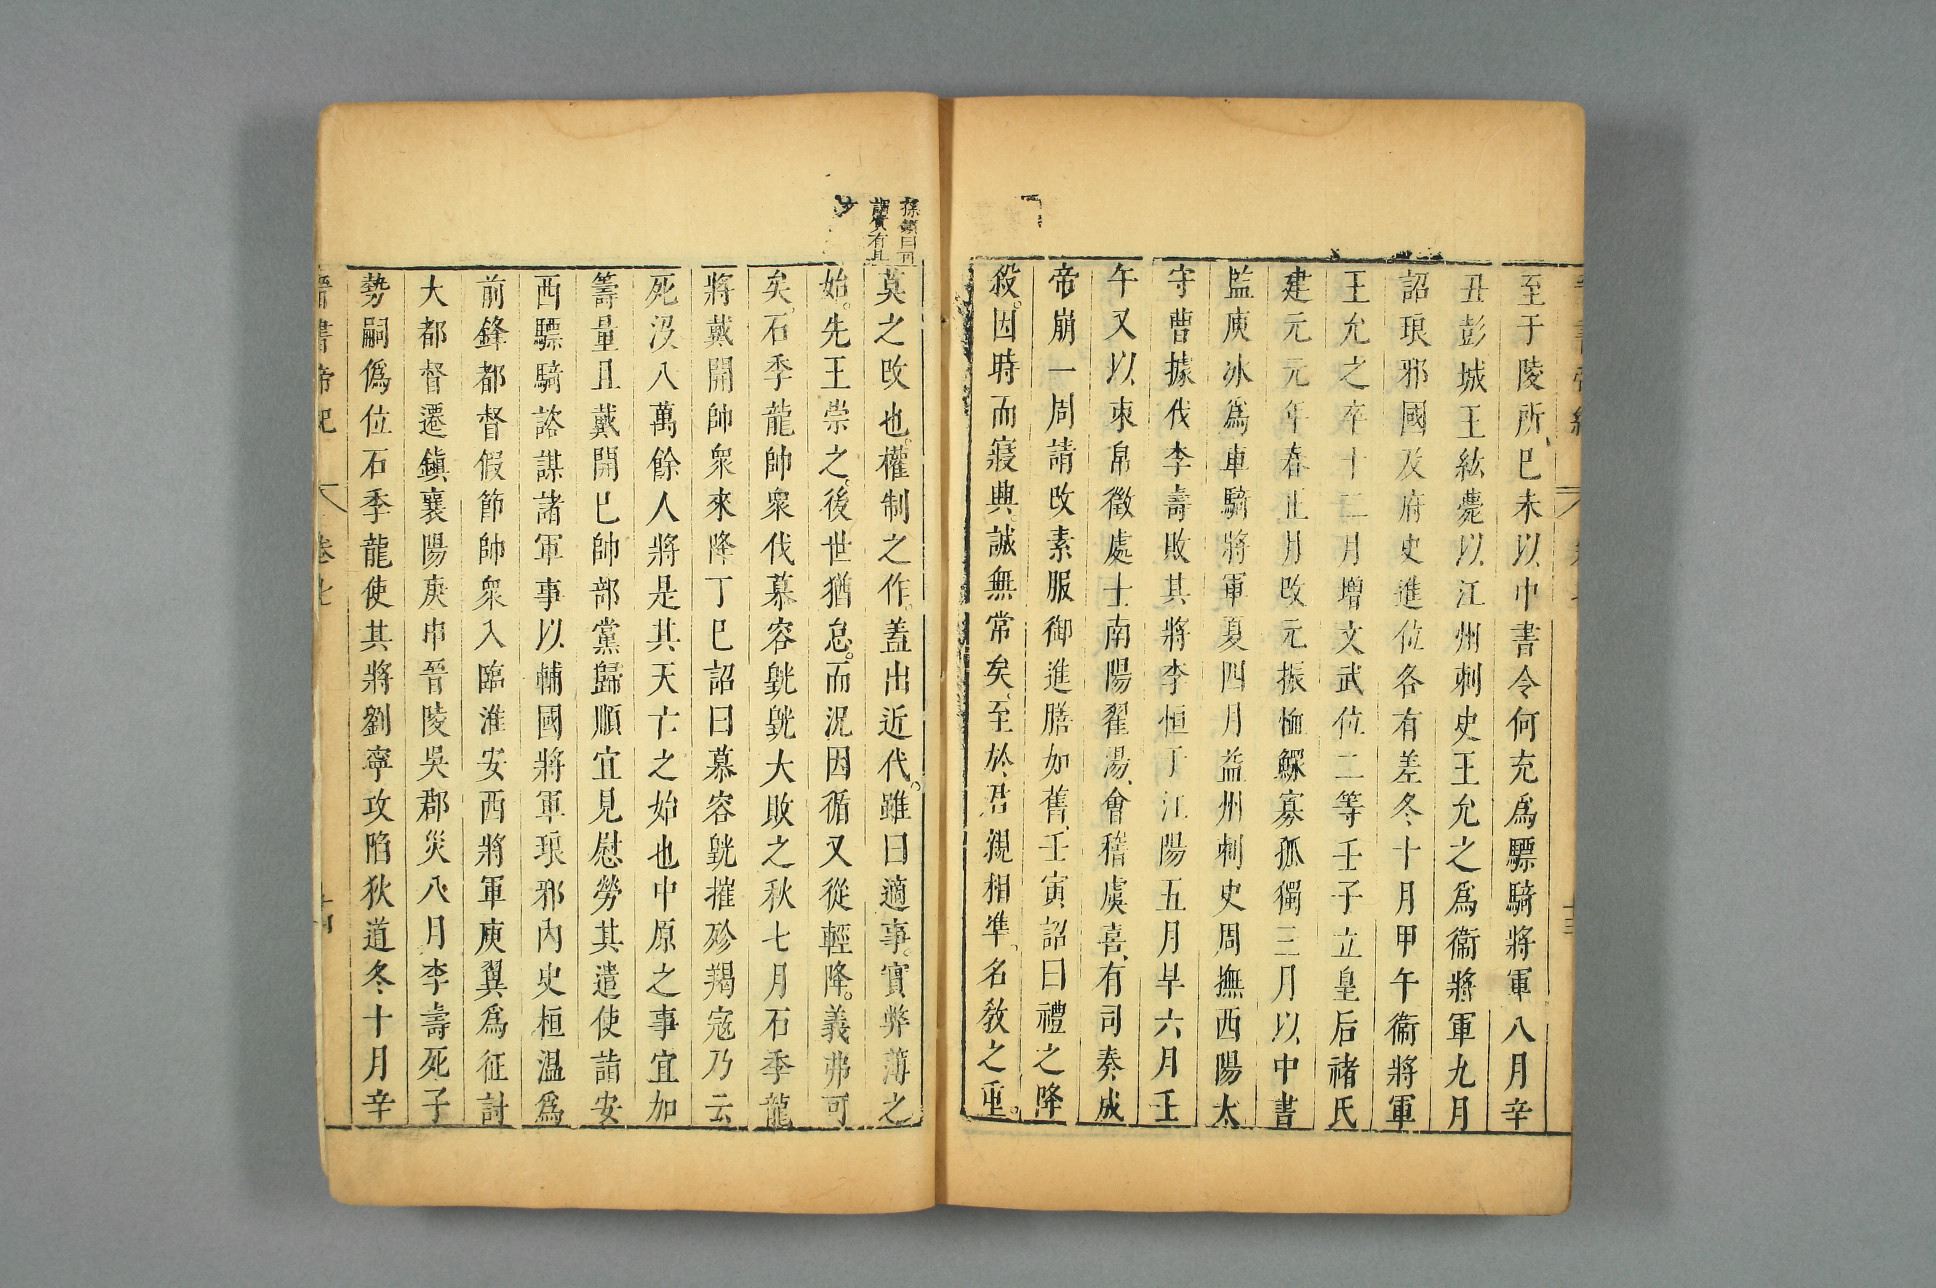 至于陵所己未以中書令何充爲驃騎將軍八月辛
丑彭城王紘薨以江州刺史王允之爲衞將軍九月
詔琅邪國及府史進位各有差冬十月甲午衞將軍
王允之卒十二月增文武位二等壬子立皇后褚氏
建元元年春正月改元振恤鰥寡孤獨三月以中書
監庾冰爲車騎將軍夏四月益州刺史周撫西陽太
守曹據伐李壽敗其將李恒于江陽五月旱六月壬
午又以束帛徵處士南陽翟湯會稽虞喜有司奏成
帝崩一周請改素服御進膳如舊壬寅詔曰禮之降
殺因時而寢興誠無常矣至於君親相準名教之重
莫之改也權制之作蓋出近代雖曰適事實弊薄之
始先王崇之後世猶怠而況因循又從輕降義弗可
矣石季龍帥衆伐慕容皝皝大敗之秋七月石季龍
將戴開帥衆來降丁巳詔曰慕容皝摧殄羯寇乃云
死沒八萬餘人將是其天亡之始也中原之事宜加
籌量且戴開已帥部黨歸順宜見慰勞其遣使詣安
西驃騎諮謀諸軍事以輔國將軍琅邪內史桓温爲
前鋒都督假節帥衆入臨淮安西將軍庾翼爲征討
大都督遷鎮襄陽庚申晉陵吳郡災八月李壽死子
勢嗣僞位石季龍使其將劉寧攻陷狄道冬十月辛
晉書帝紀 卷七